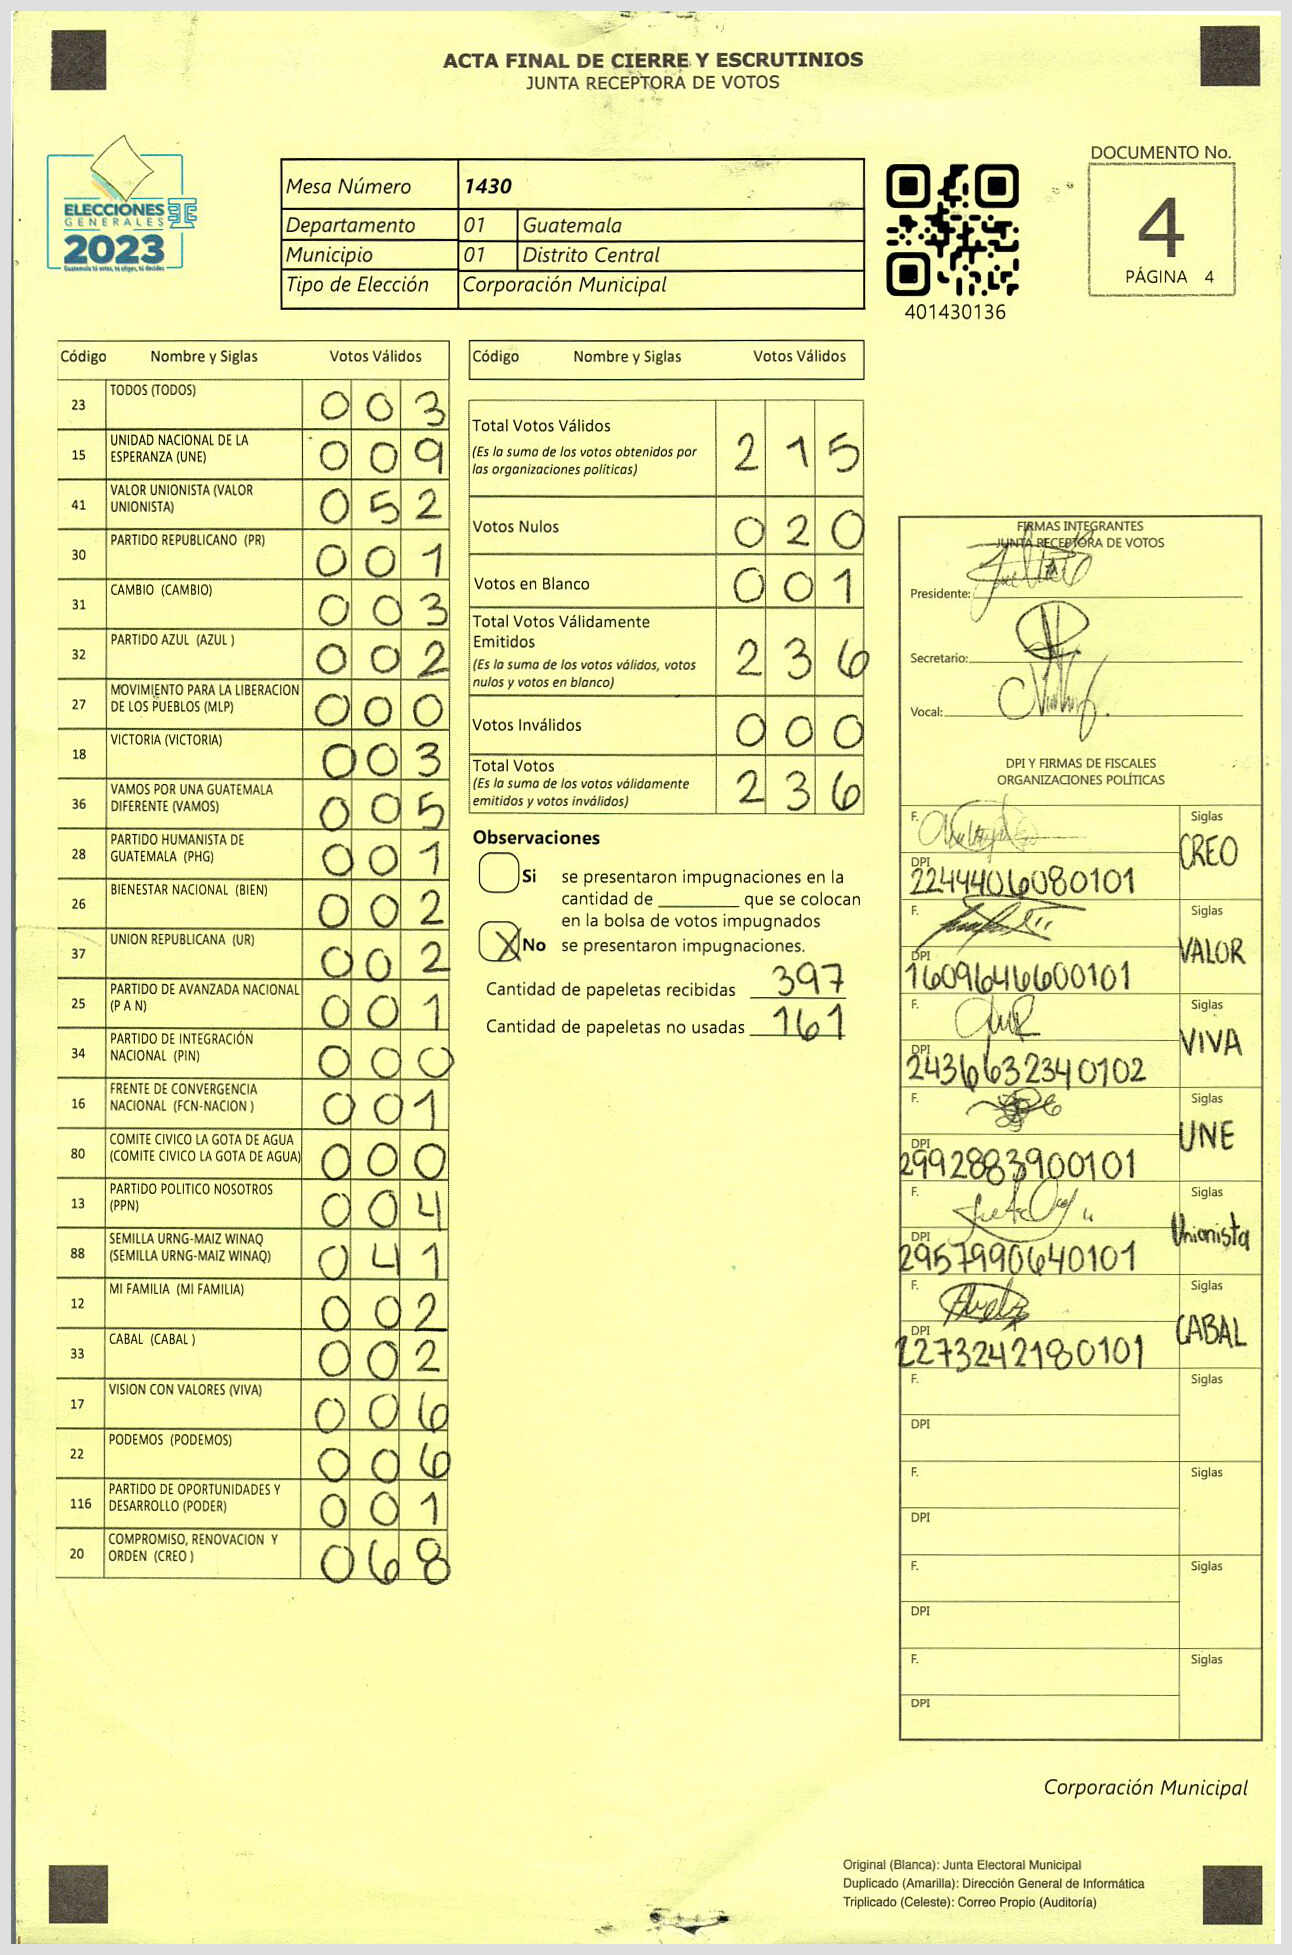 ACTA FINAL DE CIERRE Y ESCRUTINIOS
JUNTA RECEPTORA DE VOTOS
ELECCIONES
GENERALES
2023
Guatemala tú votas, tú eliges, tú decides
Mesa Número 1430
Departamento 01 Guatemala
Municipio 01 Distrito Central
Tipo de Elección Corporación Municipal
401430136
DOCUMENTO No.
4
PÁGINA 4
Código Nombre y Siglas Votos Válidos
23 TODOS (TODOS) 003
15 UNIDAD NACIONAL DE LA
ESPERANZA (UNE) 009
41 VALOR UNIONISTA (VALOR
UNIONISTA) 052
30 PARTIDO REPUBLICANO (PR) 001
31 CAMBIO (CAMBIO) 003
32 PARTIDO AZUL (AZUL ) 002
27 MOVIMIENTO PARA LA LIBERACION
DE LOS PUEBLOS (MLP) 000
18 VICTORIA (VICTORIA) 003
36 VAMOS POR UNA GUATEMALA
DIFERENTE (VAMOS) 005
28 PARTIDO HUMANISTA DE
GUATEMALA (PHG) 001
26 BIENESTAR NACIONAL (BIEN) 002
37 UNION REPUBLICANA (UR) 002
25 PARTIDO DE AVANZADA NACIONAL
(P A N) 001
34 PARTIDO DE INTEGRACIÓN
NACIONAL (PIN) 000
16 FRENTE DE CONVERGENCIA
NACIONAL (FCN-NACION ) 001
80 COMITE CIVICO LA GOTA DE AGUA
(COMITE CIVICO LA GOTA DE AGUA) 000
13 PARTIDO POLITICO NOSOTROS
(PPN) 004
88 SEMILLA URNG-MAIZ WINAQ
(SEMILLA URNG-MAIZ WINAQ) 041
12 MI FAMILIA (MI FAMILIA) 002
33 CABAL (CABAL ) 002
17 VISION CON VALORES (VIVA) 006
22 PODEMOS (PODEMOS) 006
116 PARTIDO DE OPORTUNIDADES Y
DESARROLLO (PODER) 001
20 COMPROMISO, RENOVACION Y
ORDEN (CREO ) 068
Código Nombre y Siglas Votos Válidos
Total Votos Válidos
(Es la suma de los votos obtenidos por
las organizaciones políticas) 215
Votos Nulos 020
Votos en Blanco 001
Total Votos Válidamente
Emitidos
(Es la suma de los votos válidos, votos
nulos y votos en blanco) 236
Votos Inválidos 000
Total Votos
(Es la suma de los votos válidamente
emitidos y votos inválidos) 236
Observaciones
Si se presentaron impugnaciones en la
cantidad de ________ que se colocan
en la bolsa de votos impugnados
X No se presentaron impugnaciones.
Cantidad de papeletas recibidas 397
Cantidad de papeletas no usadas 161
FIRMAS INTEGRANTES
JUNTA RECEPTORA DE VOTOS
Presidente:
Secretario:
Vocal:
DPI Y FIRMAS DE FISCALES
ORGANIZACIONES POLÍTICAS
F. Siglas
CREO
DPI
2244406080101
F. Siglas
VALOR
DPI
1609646600101
F. Siglas
VIVA
DPI
2436632340102
F. Siglas
UNE
DPI
2992883900101
F. Siglas
Unionista
DPI
2957990640101
F. Siglas
CABAL
DPI
2273242180101
F. Siglas
DPI
F. Siglas
DPI
F. Siglas
DPI
F. Siglas
DPI
Corporación Municipal
Original (Blanca): Junta Electoral Municipal
Duplicado (Amarilla): Dirección General de Informática
Triplicado (Celeste): Correo Propio (Auditoría)